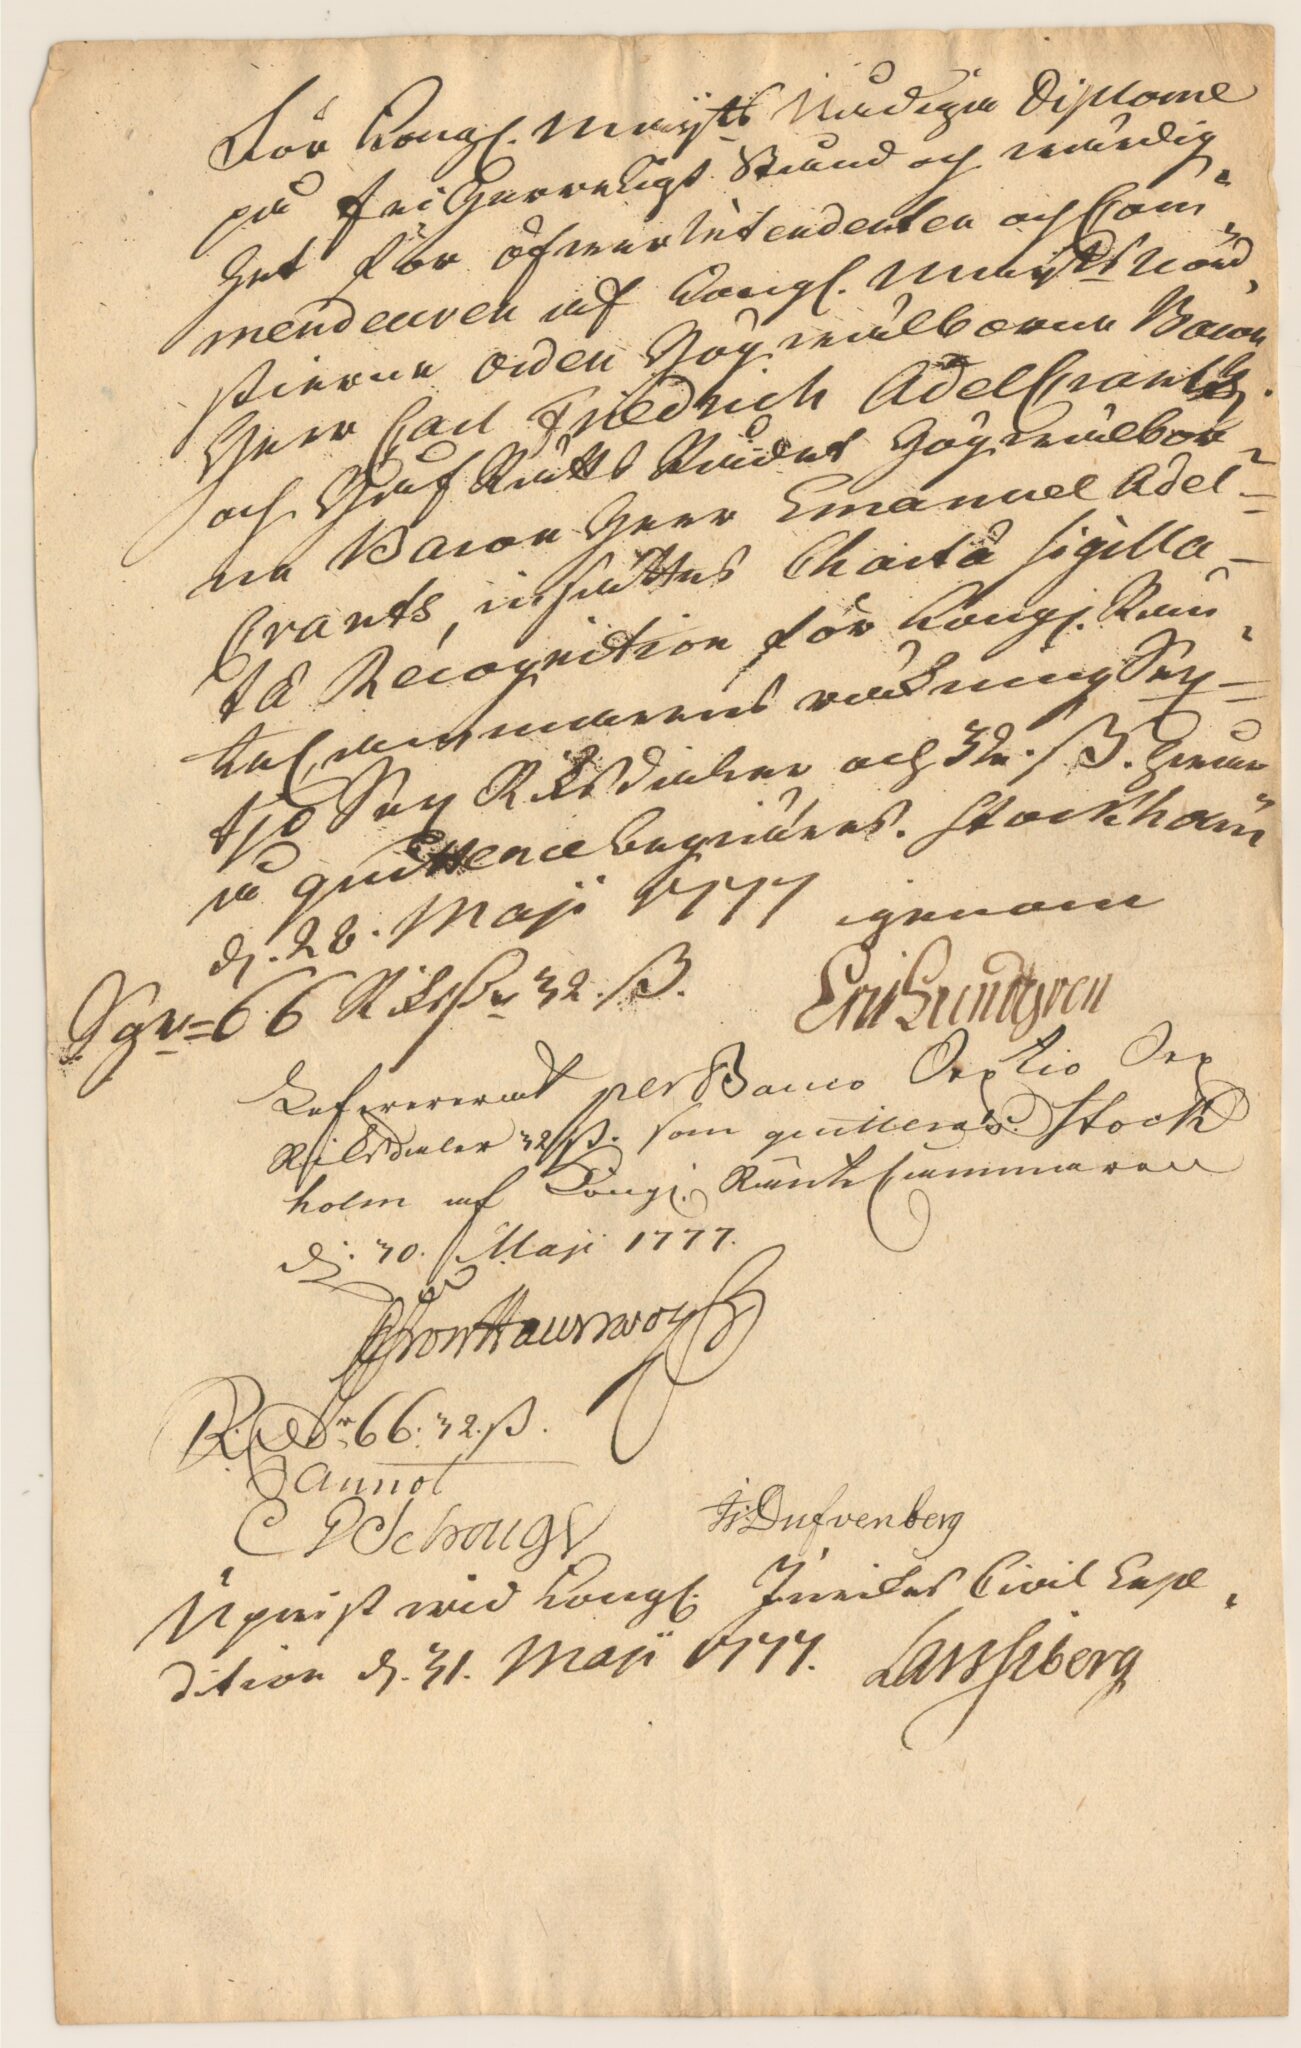 För Kongl. Maÿts Nådiga Diplome
på friherreligt Stånd och wärdig¸
het för öfwerintendenten och Com¸
mendeuren af Kongl. Maÿts Nord¸
stierne orden Högwälborne Baron
Herr Carl Friedrich AdelCrantz,
och HofRätts Rådet Högwälbor¸
ne Baron Herr Emanuel Adel=
Crants, insättes Charta Sigilla=
tæ Recognition för Kongl. Rän¸
tekammarens räkning Sex=
tjo Sex Riksdaler och 32. ß. hwar
å quittence begiäres. Stockholm
d. 28. Maji 1777 igenom
Sgr= 66 Riksdr 32. ß. Eric Lundgren
Lefwererat per Banco Sextio Sex
Riksdaler 32 ß. som quitteras. Stock
holm af Kongl. Räntekammaren
d. 30. Maji 1777.
R.Dr 66. 32. ß.
Annot
C D Schough Fr: Dufvenberg
Upwist wid Kongl. Inrikes Civil Expe¸
dition d. 31. Maji 1777.